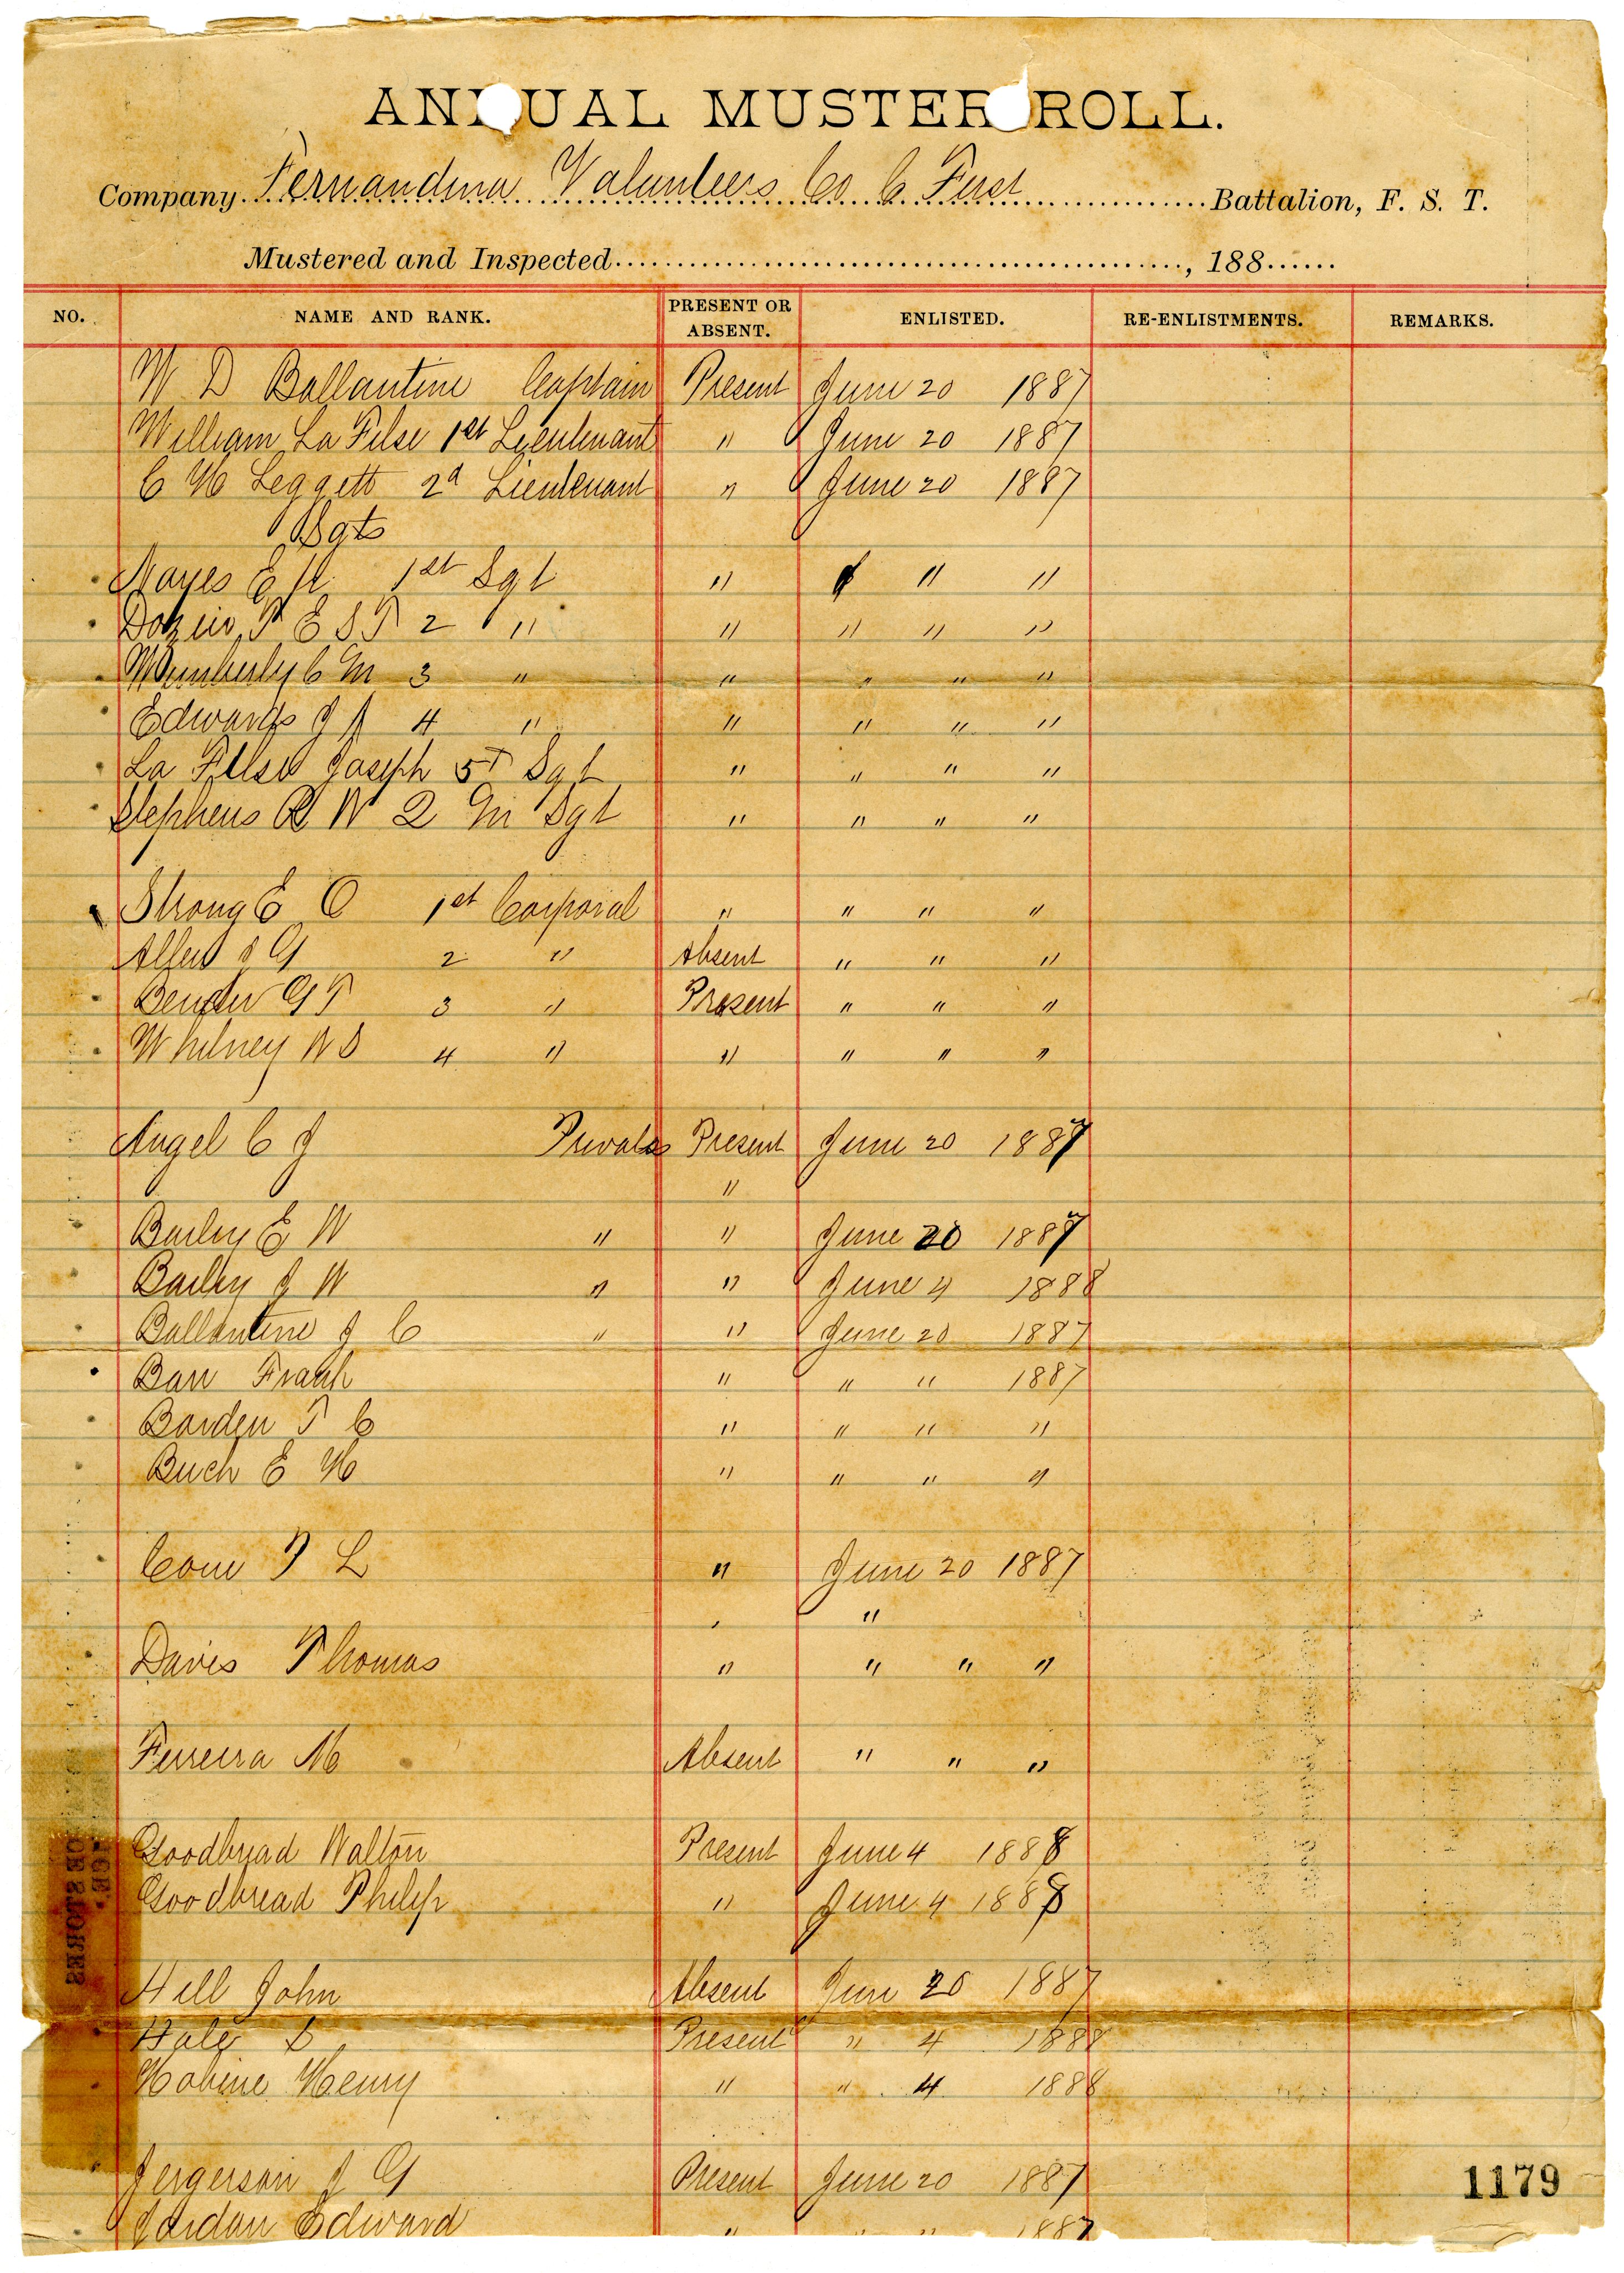 ANNUAL MUSTER ROLL.
Company Fernandina Volunteers Co C First Battalion, F. S. T.
Mustered and Inspected , 188
NO. NAME AND RANK. PRESENT OR ABSENT. ENLISTED. RE-ENLISTMENTS. REMARKS.
W D Ballantine Captain Present June 20 1887
William La Filse 1st Lieutenant " June 20 1887
C H Leggett 2d Lieutenant " June 20 1887
Sgts
Noyes E H 1st Sgt " " " "
Dozier T E S T 2 " " " " "
Wimberly C M 3 " " " " "
Edwards J A 4 " " " " "
La Filse Joseph 5T Sgt " " " "
Stephens R W Q M Sgt " " " "
Strong E O 1st Corporal " " " "
Allen J G 2 " Absent " " "
Bender G T 3 " Present " " "
Whitney W S 4 " " " " "
Angel C J Privates Present June 20 1887
"
Bailey E W " " June 20 1887
Bailey J W " " June 4 1888
Ballantine J C " " June 20 1887
Barr Frank " " " 1887
Borden T C " " " "
Buch E H " " " "
Cone T L " June 20 1887
" "
Davis Thomas " " " "
Ferreira M Absent " " "
Goodbread Walton Present June 4 1888
Goodbread Philip " June 4 1888
Hill John Absent June 20 1887
Hale D Present " 4 1888
Henry " " 4 1888
Jergerson J G Present June 20 1887
Jordan Edward " " " 1887
1179